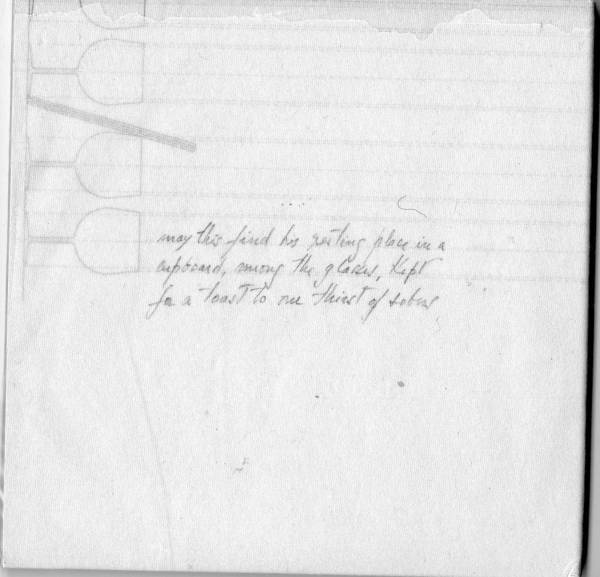 ...
may this find his resting place in a
cupboard, among the glasses, kept
for a toast to our thirst of